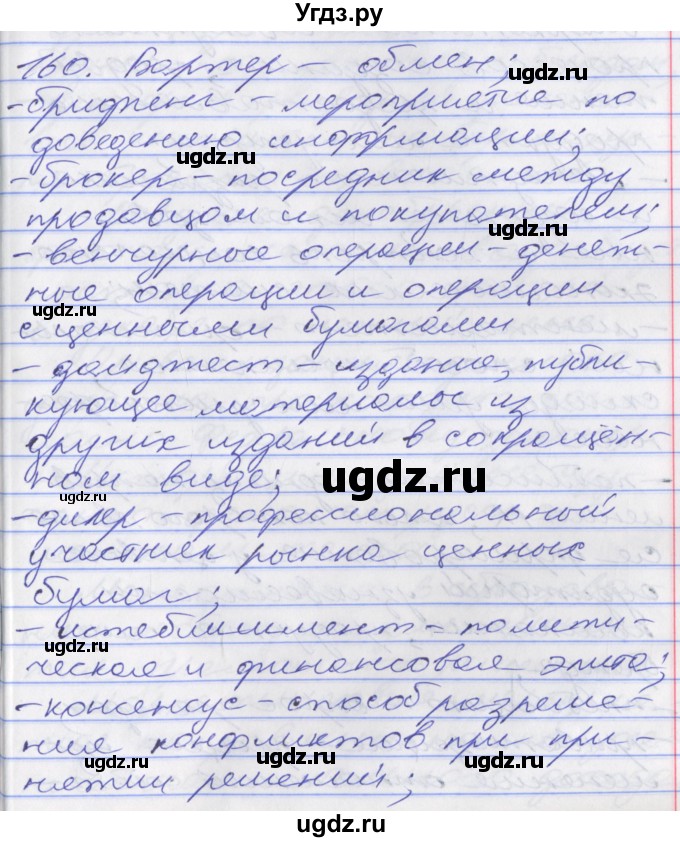 Угдз.ру
160. Бартер – обмен;
-бриджинг – мероприятие по
доведению информации;
-брокер – посредник между
ugdz.ru
продавцом и покупателем;
ugdz.ru
-венчурные операции – денеж-
ные операции и операции
ugdz.ru
с ценными бумагами
– дайджест – издание, публи-
кующее материалы из
других изданий в сокращён-
ном виде;
ugdz.ru
ugdz.ru
-дилер – профессиональный
участник рынка ценных
ugdz.ru
бумаг;
– истеблишмент – полити-
ческая и финансовая элита;
-консенсус – способ разреше-
ния конфликтов при при-
ugdz.ru
ugdz.ru
нятии решений;
ugdz.ru